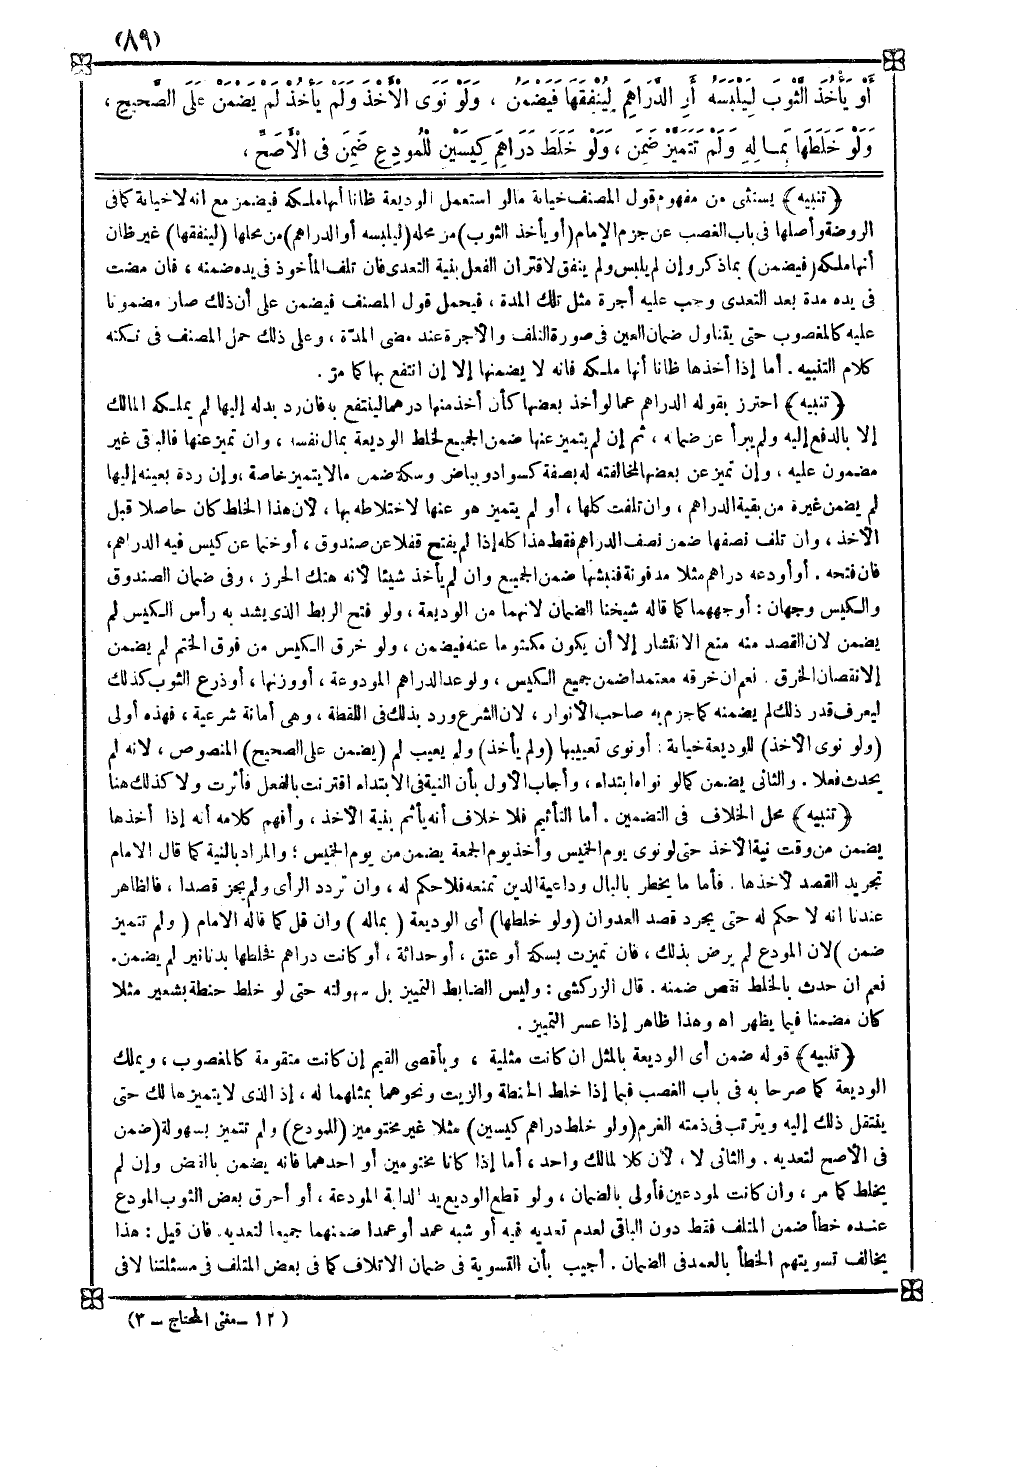 (٨٩)
أَوْ يَأْخُذَ الثَّوْبَ لِيَلْبَسَهُ أَوِ الدَّرَاهِمَ لِيُنْفِقَهَا فَيَضْمَنُ ، وَلَوْ نَوَى الْأَخْذَ وَلَمْ يَأْخُذْ لَمْ يَضْمَنْ عَلَى الصَّحِيحِ ،
وَلَوْ خَلَطَهَا بِمَالِهِ وَلَمْ تَتَمَيَّزْ ضَمِنَ ، وَلَوْ خَلَطَ دَرَاهِمَ كِيسَيْنِ لِلْمُودِعِ ضَمِنَ فِى الْأَصَحِّ ،
﴿تنبيه﴾ يستثنى من مفهوم قول المصنف خيانة مالو استعمل الوديعة ظانا أنها ملكه فيضمن مع انه لاخيانة كما فى
الروضة وأصلها فى باب الغصب عن جزم الإمام (أو يأخذ الثوب) من محله (ليلبسه أو الدراهم) من محلها (لينفقها) غير ظان
أنها ملكه (فيضمن) بما ذكر وإن لم يلبس ولم ينفق لاقتران الفعل بنية التعدى فان تلف المأخوذ فى يده ضمنه ، فان مضت
فى يده مدة بعد التعدى وجب عليه أجرة مثل تلك المدة ، فيحمل قول المصنف فيضمن على أن ذلك صار مضمونا
عليه كالمغصوب حتى يتناول ضمان العين فى صورة التلف والأجرة عند مضى المدّة ، وعلى ذلك حمل المصنف فى نكته
كلام التنبيه . أما إذا أخذها ظانا أنها ملكه فانه لا يضمنها إلا إن انتفع بها كما مرّ .
﴿تنبيه﴾ احترز بقوله الدراهم عما لو أخذ بعضها كأن أخذ منها درهما لينتفع به فان رد بدله إليها لم يملكه المالك
إلا بالدفع إليه ولم يبرأ عن ضمانه ، ثم إن لم يتميز عنها ضمن الجميع لخلط الوديعة بمال نفسه ، وان تميز عنها فالباقى غير
مضمون عليه ، وإن تميز عن بعضها لمخالفته له بصفة كسواد وبياض وسكة ضمن مالا يتميز خاصة ، وإن رده بعينه إليها
لم يضمن غيره من بقية الدراهم ، وان تلفت كلها ، أو لم يتميز هو عنها لاختلاطه بها ، لأن هذا الخلط كان حاصلا قبل
الأخذ ، وان تلف نصفها ضمن نصف الدراهم فقط هذا كله إذا لم يفتح قفلا عن صندوق ، أو ختما عن كيس فيه الدراهم،
فان فتحه . أو أودعه دراهم مثلا مدفونة فنبشها ضمن الجميع وان لم يأخذ شيئا لأنه هتك الحرز ، وفى ضمان الصندوق
والكيس وجهان : أوجههما كما قاله شيخنا الضمان لانهما من الوديعة ، ولو فتح الربط الذى يشد به رأس الكيس لم
يضمن لان القصد منه منع الانتشار إلا أن يكون مكتوما عنه فيضمن ، ولو خرق الكيس من فوق الختم لم يضمن
إلا نقصان الخرق . نعم ان خرقه معتمدا ضمن جميع الكيس ، ولو عد الدراهم المودوعة ، أو وزنها ، أو ذرع الثوب كذلك
ليعرف قدر ذلك لم يضمنه كما جزم به صاحب الأنوار ، لان الشرع ورد بذلك فى اللقطة ، وهى أمانة شرعية ، فهذه أولى
(ولو نوى الأخذ) للوديعة خيانة . أو نوى تعييبها (ولم يأخذ) ولم يعيب لم (يضمن على الصحيح) المنصوص ، لانه لم
يحدث فعلا . والثانى يضمن كما لو نواه ابتداء ، وأجاب الأول بأن النية فى الابتداء اقترنت بالفعل فأثرت ولا كذلك هنا
﴿تنبيه﴾ محل الخلاف فى التضمين . أما التأثيم فلا خلاف أنه يأثم بنية الأخذ ، وأفهم كلامه أنه إذا أخذها
يضمن من وقت نية الأخذ حتى لو نوى يوم الخميس وأخذ يوم الجمعة يضمن من يوم الخميس ؛ والمراد بالنية كما قال الامام
تجريد القصد لأخذها . فأما ما يخطر بالبال وداعية الدين تمنعه فلا حكم له ، وان تردد الرأى ولم يجز قصدا ، فالظاهر
عندنا انه لا حكم له حتى يجرد قصد العدوان (ولو خلطها) أى الوديعة ( بماله ) وان قل كما قاله الامام ( ولم تتميز
ضمن )لان المودع لم يرض بذلك ، فان تميزت بسكة أو عتق ، أو حداثة ، أو كانت دراهم فخلطها بدنانير لم يضمن.
نعم ان حدث بالخلط نقص ضمنه . قال الزركشى : وليس الضابط التمييز بل سهولته حتى لو خلط حنطة بشعير مثلا
كان مضمنا فيما يظهر اه وهذا ظاهر إذا عسر التمييز .
﴿تنبيه﴾ قوله ضمن أى الوديعة بالمثل ان كانت مثلية ، وبأقصى القيم إن كانت متقومة كالمغصوب ، ويملك
الوديعة كما صرحا به فى باب الغصب فيما إذا خلط الحنطة والزيت ونحوهما بمثلهما له ، إذ الذى لا يتميز هالك حتى
ينتقل ذلك إليه ويترتب فى ذمته الغرم (ولو خلط دراهم كيسين) مثلا غير مختومين (للمودع) ولم تتميز بسهولة (ضمن
فى الأصح لتعديه . والثانى لا ، لأن كلا لمالك واحد ، أما إذا كانا مختومين أو احدهما فانه يضمن بالفض وإن لم
يخلط كما مر ، وان كانت لمودعين فأولى بالضمان ، ولو قطع الوديع يد الدابة المودعة ، أو أحرق بعض الثوب المودع
عنده خطأ ضمن المتلف فقط دون الباقى لعدم تعديه فيه أو شبه عمد أو عمدا ضمنهما جميعا لتعديه. فان قيل : هذا
يخالف تسويتهم الخطأ بالعمد فى الضمان . أجيب بأن التسوية فى ضمان الاتلاف كما فى بعض المتلف فى مسئلتنا لا فى
( ١٢ - مغنى المحتاج - ٣)